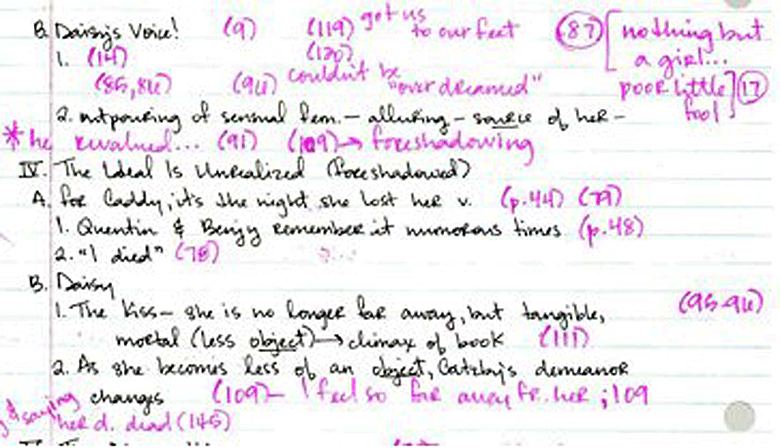 B. Daisy's Voice! (9) (119) got us to our feet (87) [nothing but a girl...
1. (14) (120)
(85,86) (96) couldn't be "over dreamed" poor little fool] (17)
2. outpouring of sensual fem. – alluring – source of her –
* he revalued... (91) (109) → foreshadowing
IV. The Ideal Is Unrealized (foreshadowed)
A. for Caddy, it's the night she lost her v. (p.44) (79)
1. Quentin & Benjy remember it numorous times (p.48)
2. "I died" (78)
B. Daisy
1. The Kiss – she is no longer far away, but tangible, (95-96)
mortal (less object) → climax of book (111)
2. As she becomes less of an object, Gatzby's demeanor
changes (109) – I feel so far away fr. her ; 109
saying
her d. died (145)